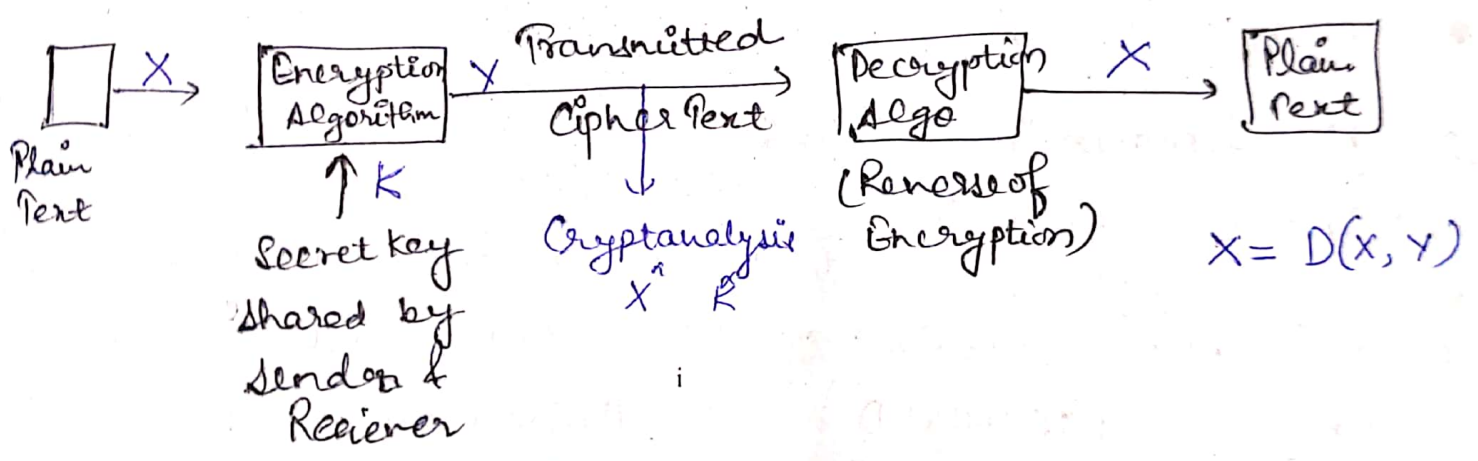 X
Plain
Text
Encryption
Algorithm
K
Secret key
shared by
sender &
Reciever
Y
Transmitted
Cipher Text
Cryptanalysis
X^ K^
Decryption
Algo
(Reverse of
Encryption)
X
Plain
Text
X = D(X, Y)
i